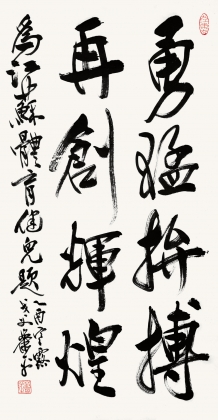 勇猛拚搏
再創輝煌
為江蘇體育健兒題
乙酉